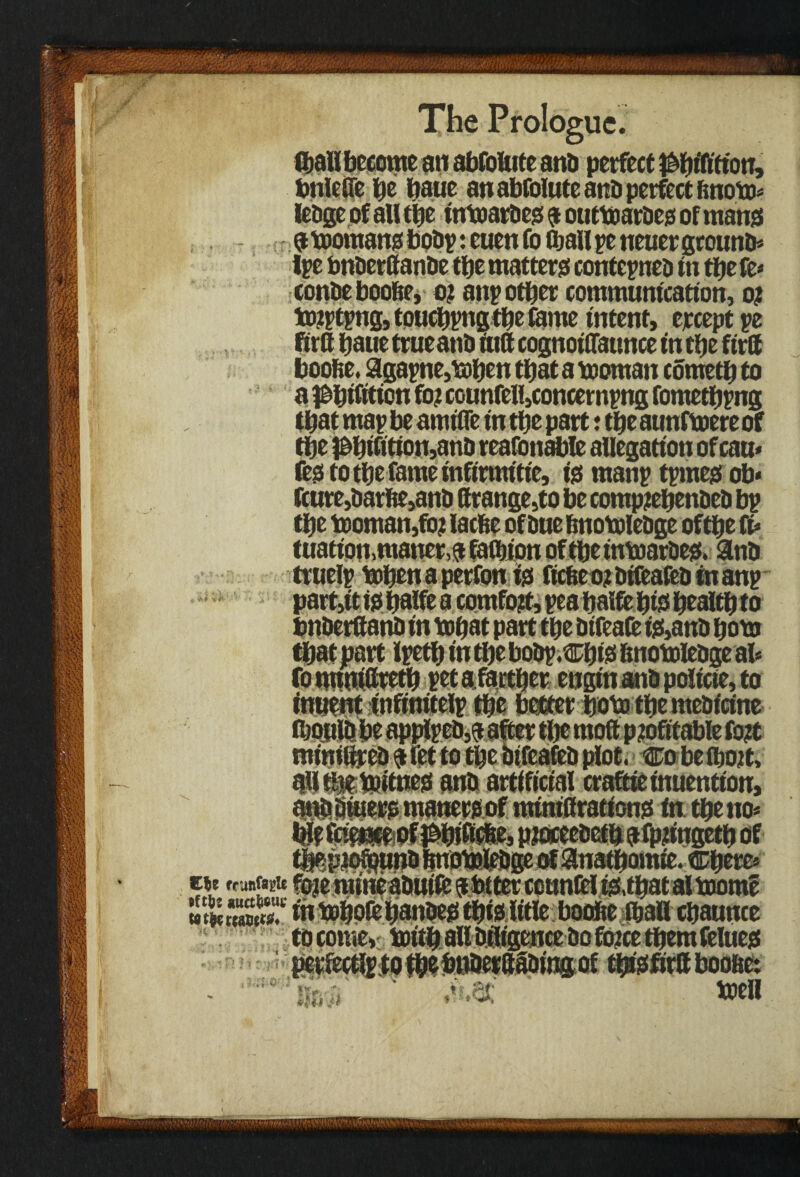 The Prologue.
shall become an absolute and perfect Phisition,
vnlesse he haue an absolute and perfect know-
ledge of all the inwardes & outwardes of mans
& womans body: euen so shall ye neuer ground-
lye vnderstande the matters conteyned in the se-
conde booke, or any other communication, or
wrytyng, touchyng the same intent, except ye
first haue true and iust cognoissaunce in the first
booke. Agayne, when that a woman cōmeth to
a Phisition for counsell, concernyng somethyng
that may be amisse in the part: the aunswere of
the Phisition, and reasonable allegation of cau-
ses to the same infirmitie, is many tymes ob-
scure, darke, and strange, to be comprehended by
the woman, for lacke of due knowledge of the si-
tuation, maner, & fashion of the inwardes. And
truely when a person is sicke or diseased in any
part, it is halfe a comfort, yea halfe his health to
vnderstand in what part the disease is, and how
that part lyeth in the body. This knowledge al-
so ministreth yet a farther engin and policie, to
inuent infinitely the better how the medicine
should be applyed, & after the most profitable sort
ministred & set to the diseased plot. To be short,
all the witnes and artificial craftie inuention,
and diuers maners of ministrations in the no-
ble science of Phisicke, proceedeth & springeth of
the profound knowledge of Anathomie. There-
fore mine aduise & vtter counsel is, that al womē
in whose handes this litle booke shall chaunce
to come, with all diligence do force them selues
perfectly to the vnderstāding of this first booke:
well
The counsayle
of the aucthour
to the readers.